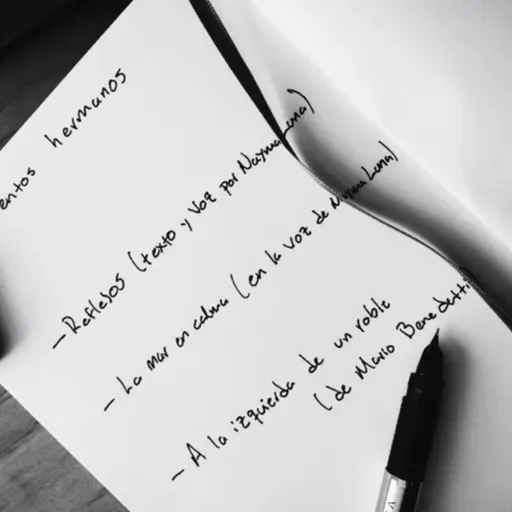 hermanos
- Reflejos (texto y Voz por Nayma Luna)
- La mar en calma (en la voz de Luna)
- A la izquierda de un roble
(de Mario Benedetti